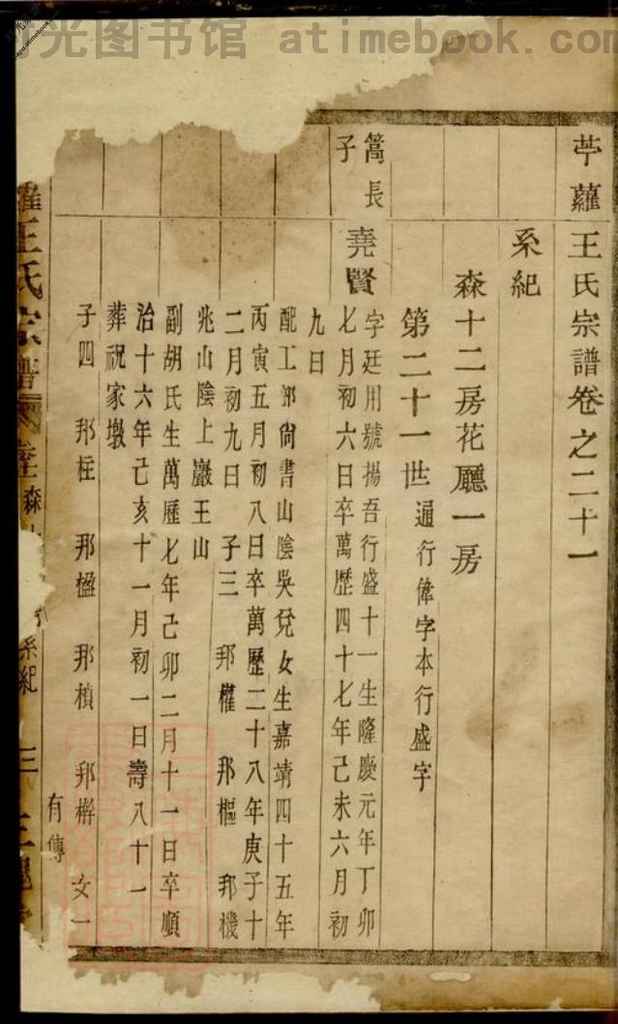 时光图书馆 atimebook.com
苧蘿王氏宗譜卷之二十一
系紀
森十二房花廳一房
第二十一世通行偉字本行盛字
篙長子
堯賢字廷用號揚吾行盛十一生隆慶元年丁卯
七月初六日卒萬歷四十七年己未六月初
九日
配工部尚書山陰吳兌女生嘉靖四十五年
丙寅五月初八日卒萬歷二十八年庚子十
二月初九日 子三 邦權 邦樞 邦機
兆山陰上巖王山
副胡氏生萬歷七年己卯二月十一日卒順
治十六年己亥十一月初一日壽八十一
葬祝家墩
子四 邦柱 邦楹 邦楨 邦㮤 女一
有傳
王氏宗譜 森 系紀 三 三槐